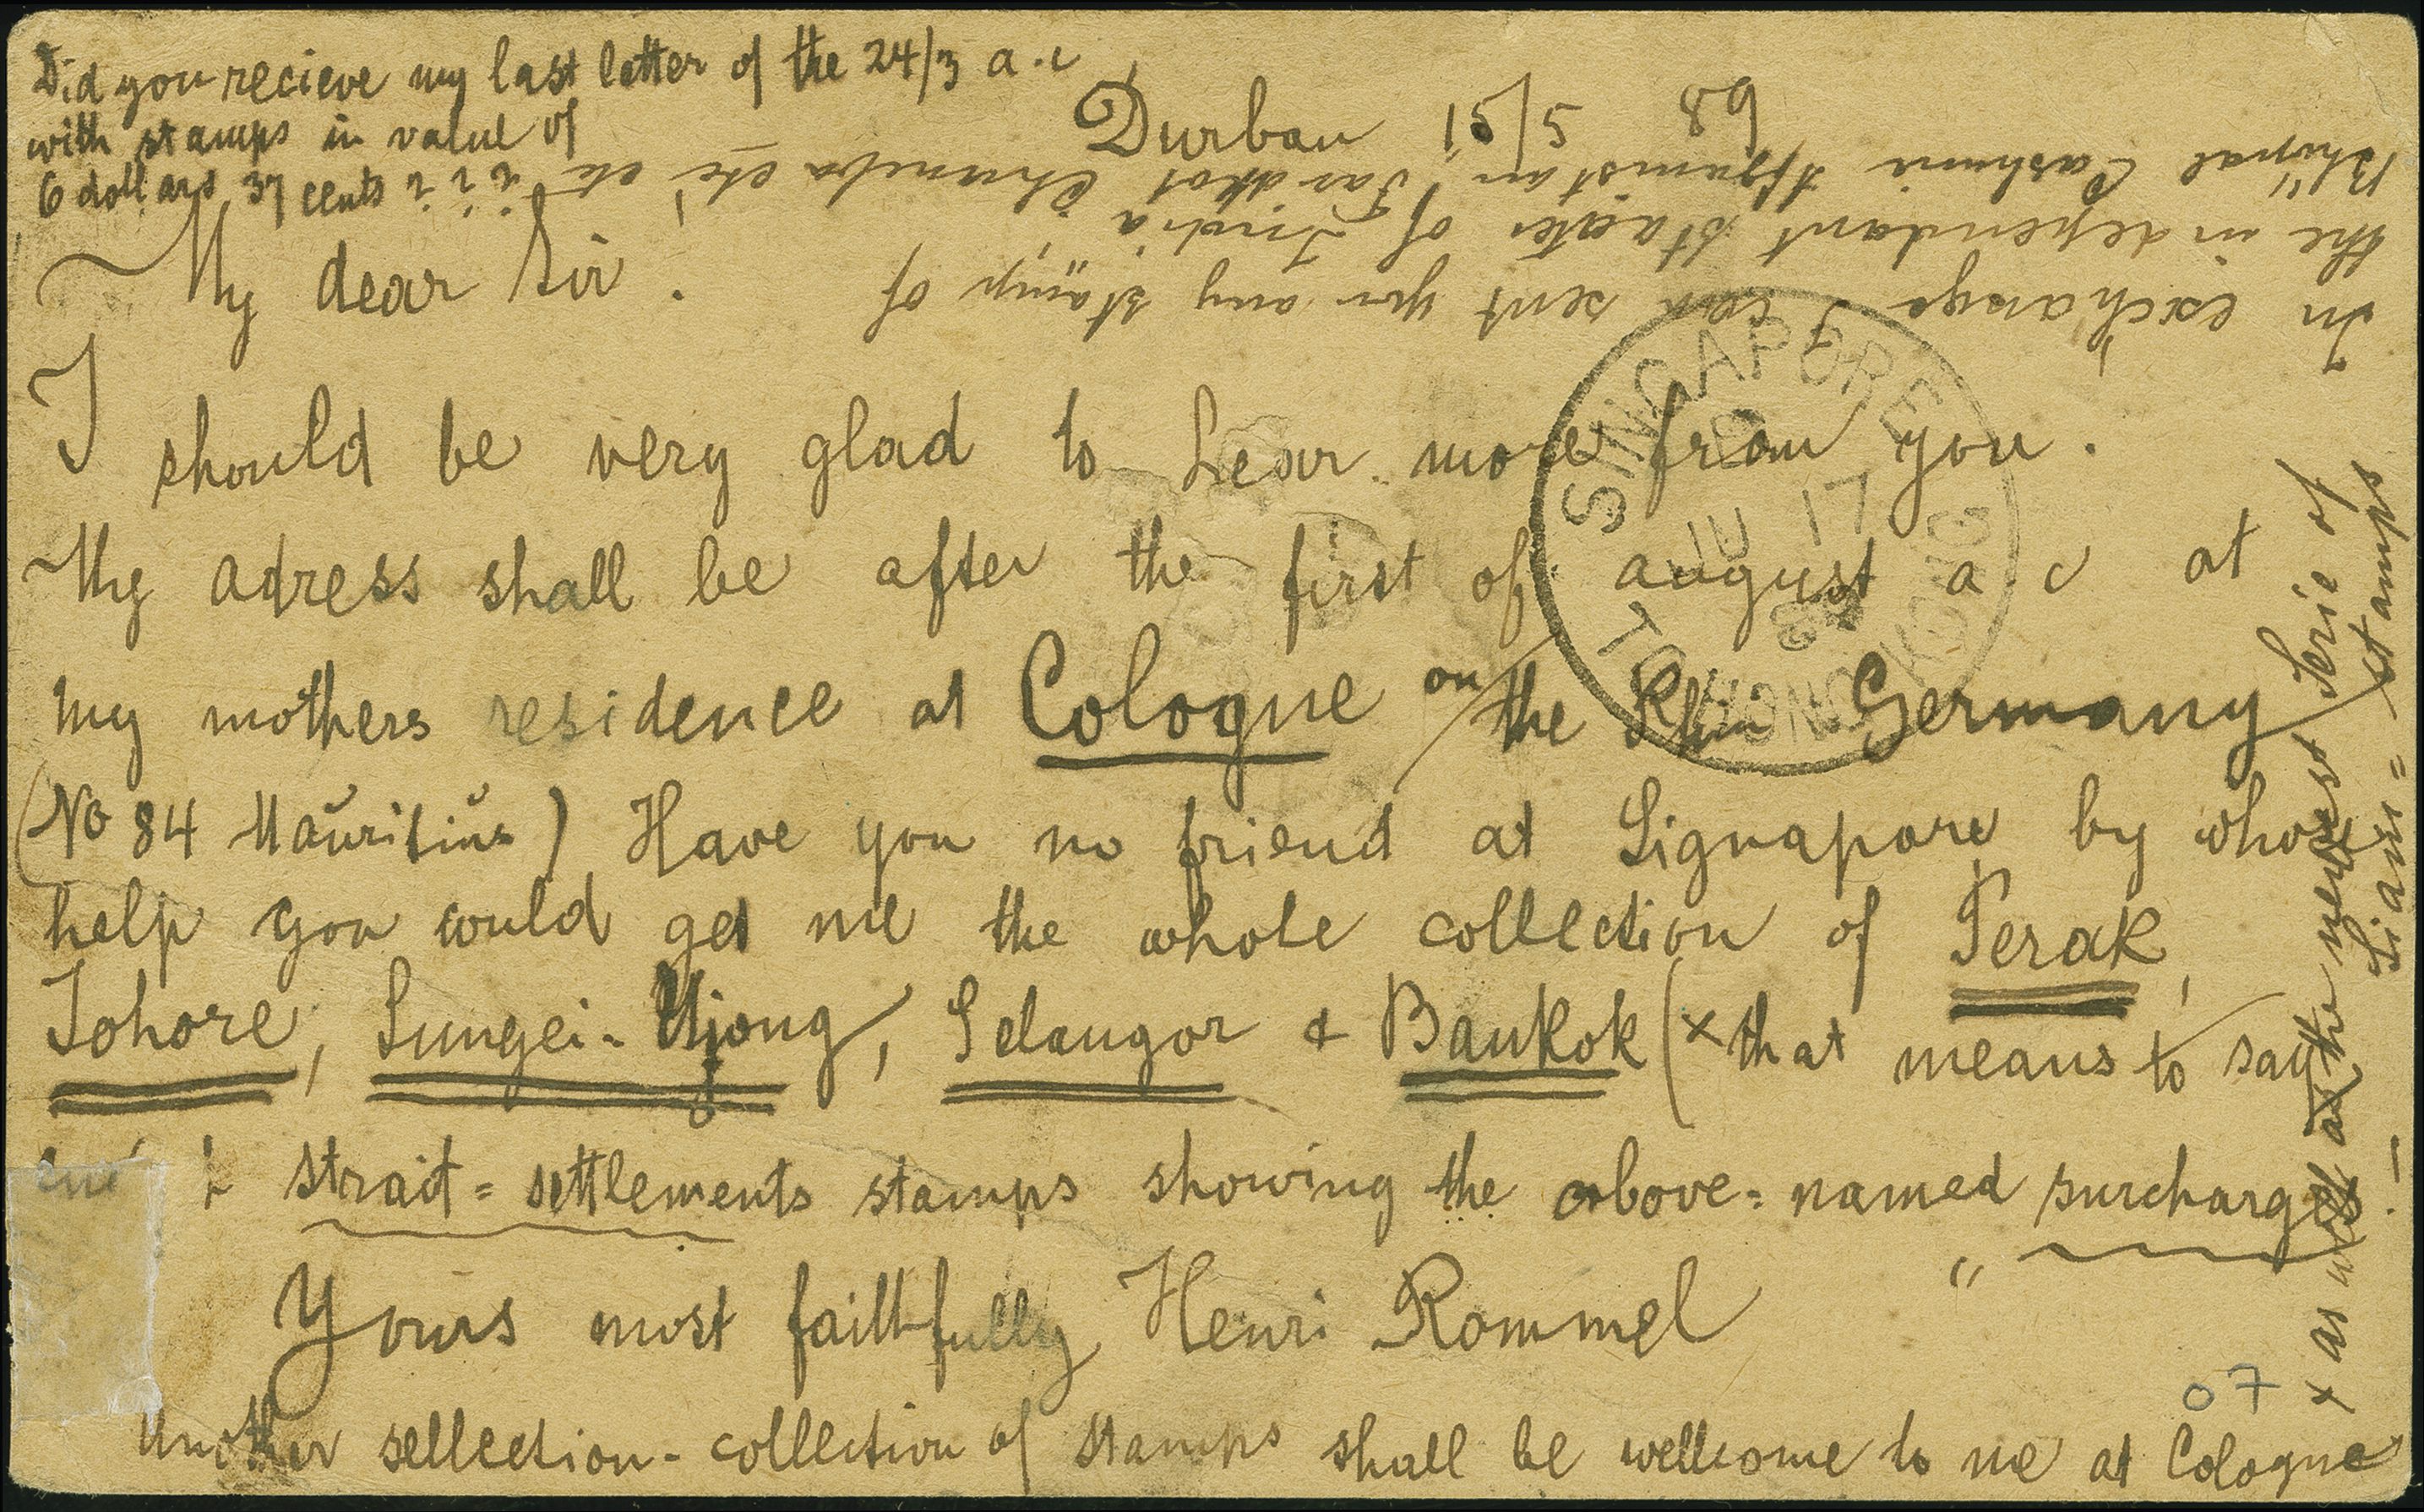 Did you recieve my last letter of the 24/3 a.c
with stamps in value of
6 dollars 37 cents
Durban 15/5 89
My dear Sir.
I should be very glad to hear more from you.
My adress shall be after the first of august a.c at
my mothers residence at Cologne on the Rhin Germany
(No 84 Mauritius) Have you no friend at Signapore by whose
help you would get me the whole collection of Perak,
Johore, Sungei-Ujong, Selangor & Bankok (x that means to say
strait=settlements stamps showing the above=named surcharges!
Yours most faithfully Henri Rommel
Another sellection-collection of stamps shall be wellcome to me at Cologne
x as well as the newest Serie of
Siam=stamps
In exchange I can sent you any stamp of
the independant states of India
Bhopal Cashmir Afganistan Faridkot Chamba etc etc etc
SINGAPORE
JU 17
89
TO HONG KONG
07